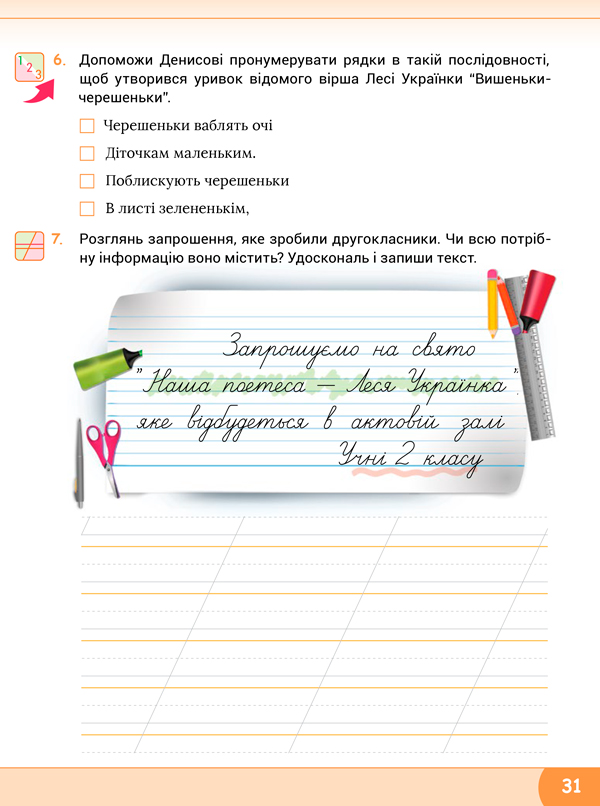 1
2
3
6. Допоможи Денисові пронумерувати рядки в такій послідовності,
щоб утворився уривок відомого вірша Лесі Українки “Вишеньки-
черешеньки”.
Черешеньки ваблять очі
Діточкам маленьким.
Поблискують черешеньки
В листі зелененькім,
7. Розглянь запрошення, яке зробили другокласники. Чи всю потріб-
ну інформацію воно містить? Удоскональ і запиши текст.
Запрошуємо на свято
”Наша поетеса — Леся Українка”,
яке відбудеться в актовій залі
Учні 2 класу
31